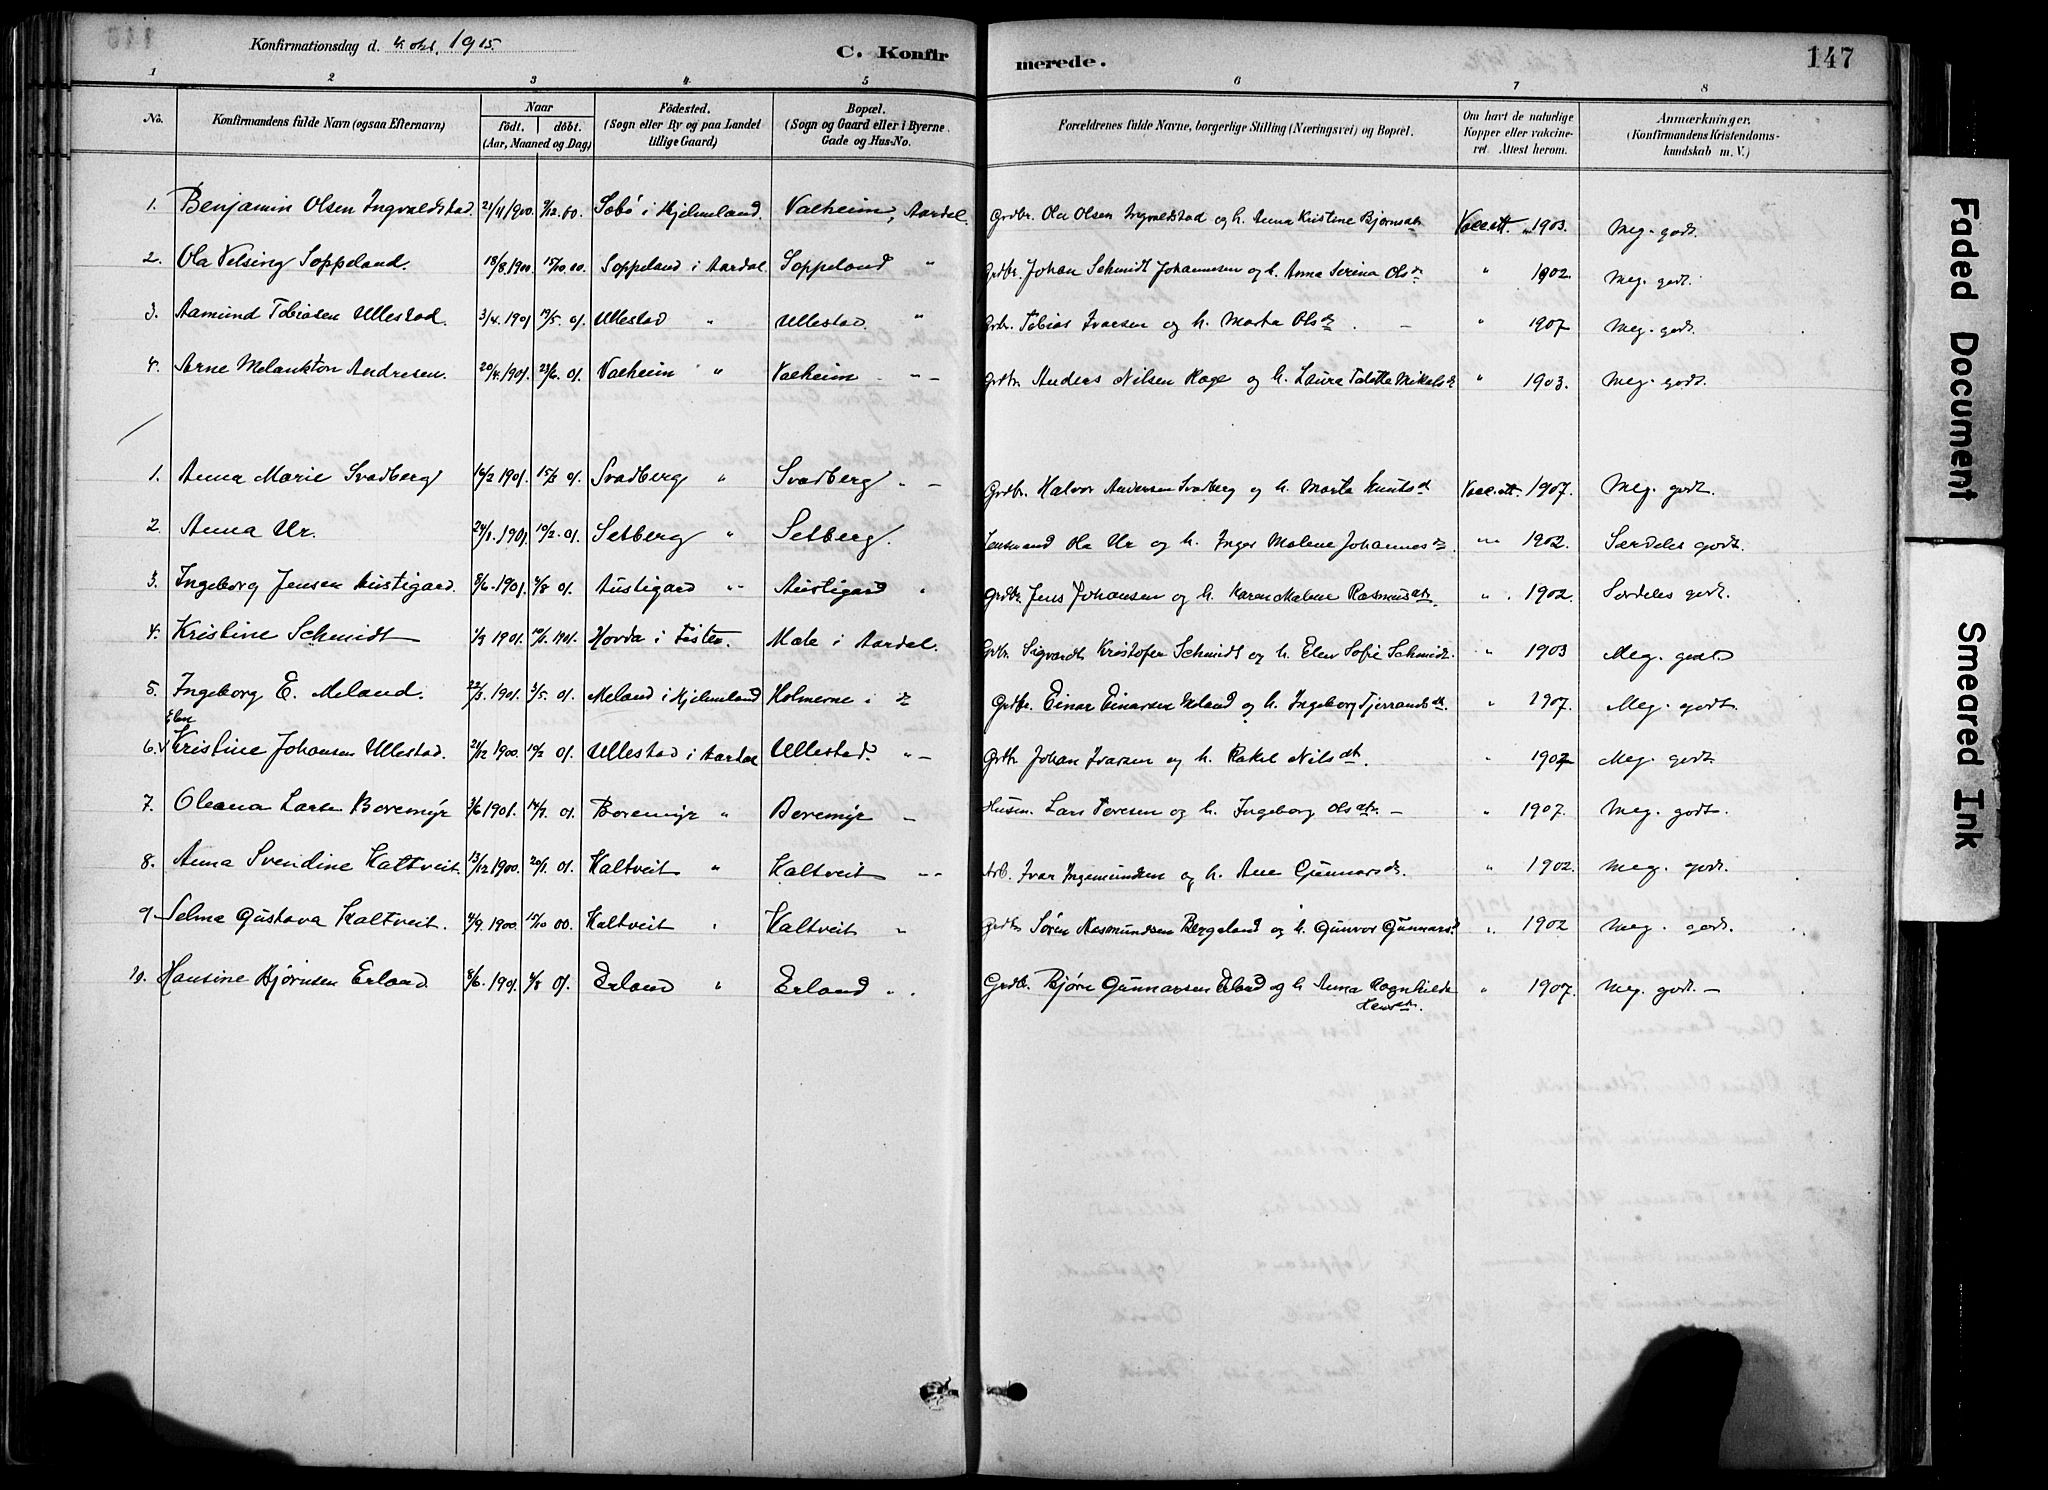 Konfirmationsdag d. 4. okt. 1915.
C. Konfirmerede.
147
1 2 3 4 5 6 7 8
No.
Konfirmandens fulde Navn (ogsaa Efternavn)
Naar
født. døbt.
(Aar, Maaned og Dag)
Fødested.
(Sogn eller By og paa Landet
tillige Gaard)
Bopæl.
(Sogn og Gaard eller i Byerne
Gade og Hus-No.
Forældrenes fulde Navne, borgerlige Stilling (Næringsvei) og Bopæl.
Om havt de naturlige
Kopper eller vakcine-
ret. Attest herom.
Anmærkninger.
(Konfirmandens Kristendoms-
kundskab m. V.)
1. Benjamin Olsen Ingvaldstad 21/11 1900. 9/12 00. Sæbø i Hjelmeland. Valheim, Aardal. Grdbr. Ola Olsen Ingvaldstad og h. Anna Kristine Bjørnsdtr Vacc.att. " 1903. Meg. godt.
2. Ola Velsing Soppeland. 18/8 1900. 15/10 00. Soppeland i Aardal Soppeland " Grdbr. Johan Schmidt Johannesen og h. Anna Serina Olsdr " 1902 Meg. godt.
3. Aamund Tobiasen Ullestad. 3/4. 1901 19/5. 01. Ullestad " Ullestad. " Grbr. Tobias Ivarsen og h. Marta Olsdr. — " 1907 Meg. godt.
4. Arne Melankton Andresen. 20/4. 1901. 23/6. 01. Valheim " Valheim " — Grbr. Anders Nilsen Rage og h. Laura Tolette Mikalsdr " 1903. Meg. godt.
1. Anna Marie Svadberg 16/2 1901. 15/3 01. Svadberg " Svadberg " — Grdbr. Halvor Andersen Svadberg og h. Marta Knutsd Vacc.att. 1907. Meg. godt.
2. Anna Ur. 24/1. 1901. 10/2. 01. Setberg " Setberg. Lensmand Ola Ur og h. Inger Malene Johannesdr " 1902. Særdeles godt.
3. Ingeborg Jensen Austigard. 8/6. 1901. 4/8 01. Austigard " Austigard " Grdbr. Jens Johansen og h. Karen Malene Rasmusdtr. " 1902. Særdeles godt.
4. Kristine Schmidt 1/3 1901. 10/1. 1901. Hovda i Fister. Mæle i Aardal. Grdbr. Sigvardt Kristofer Schmidt og h. Elen Sofie Schmidt. " 1903 Meg. godt.
5. Ingeborg E. Meland. 22/3. 1901. 3/5. 01. Meland i Hjelmeland Holmerne i " Grdbr. Einar Einarsen Meland og h. Ingeborg Tjerrandsdr. " 1907. Meg. godt.
Elen
6. Kristine Johansen Ullestad. 21/12 1900. 10/2 01. Ullestad i Aardal Ullestad. " — Grbr Johan Ivarsen og h. Rakel Nilsdtr. " 1907 Meg. godt
7. Oleana Larsen Boremyr 3/6 1901. 14/7. 01. Boremyr " Boremyr — Husm. Lars Toresen og h. Ingeborg Olsdtr. — " 1907. Meg. godt.
8. Anna Svendine Kaltveit. 13/12 1900. 20/1. 01. Kaltveit " Kaltveit " — Arb. Ivar Ingemundsen og h. Ane Gunnarsdr. " 1902. Meg. godt.
9. Selma Gustava Kaltveit. 4/9. 1900. 15/10 00. Kaltveit " Kaltveit " Grdbr Søren Aasmundsen Bergeland og h. Gunvor Gunnarsd " 1902 Meg. godt.
10. Hansine Bjørnsen Erland 8/6. 1901. 4/8 01. Erland " Erland " Grdbr. Bjørn Gunnarsen Erland og h. Anna Ragnhilde " 1907. Meg. godt. —
Hansdtr.
Faded Document
Smeared Ink